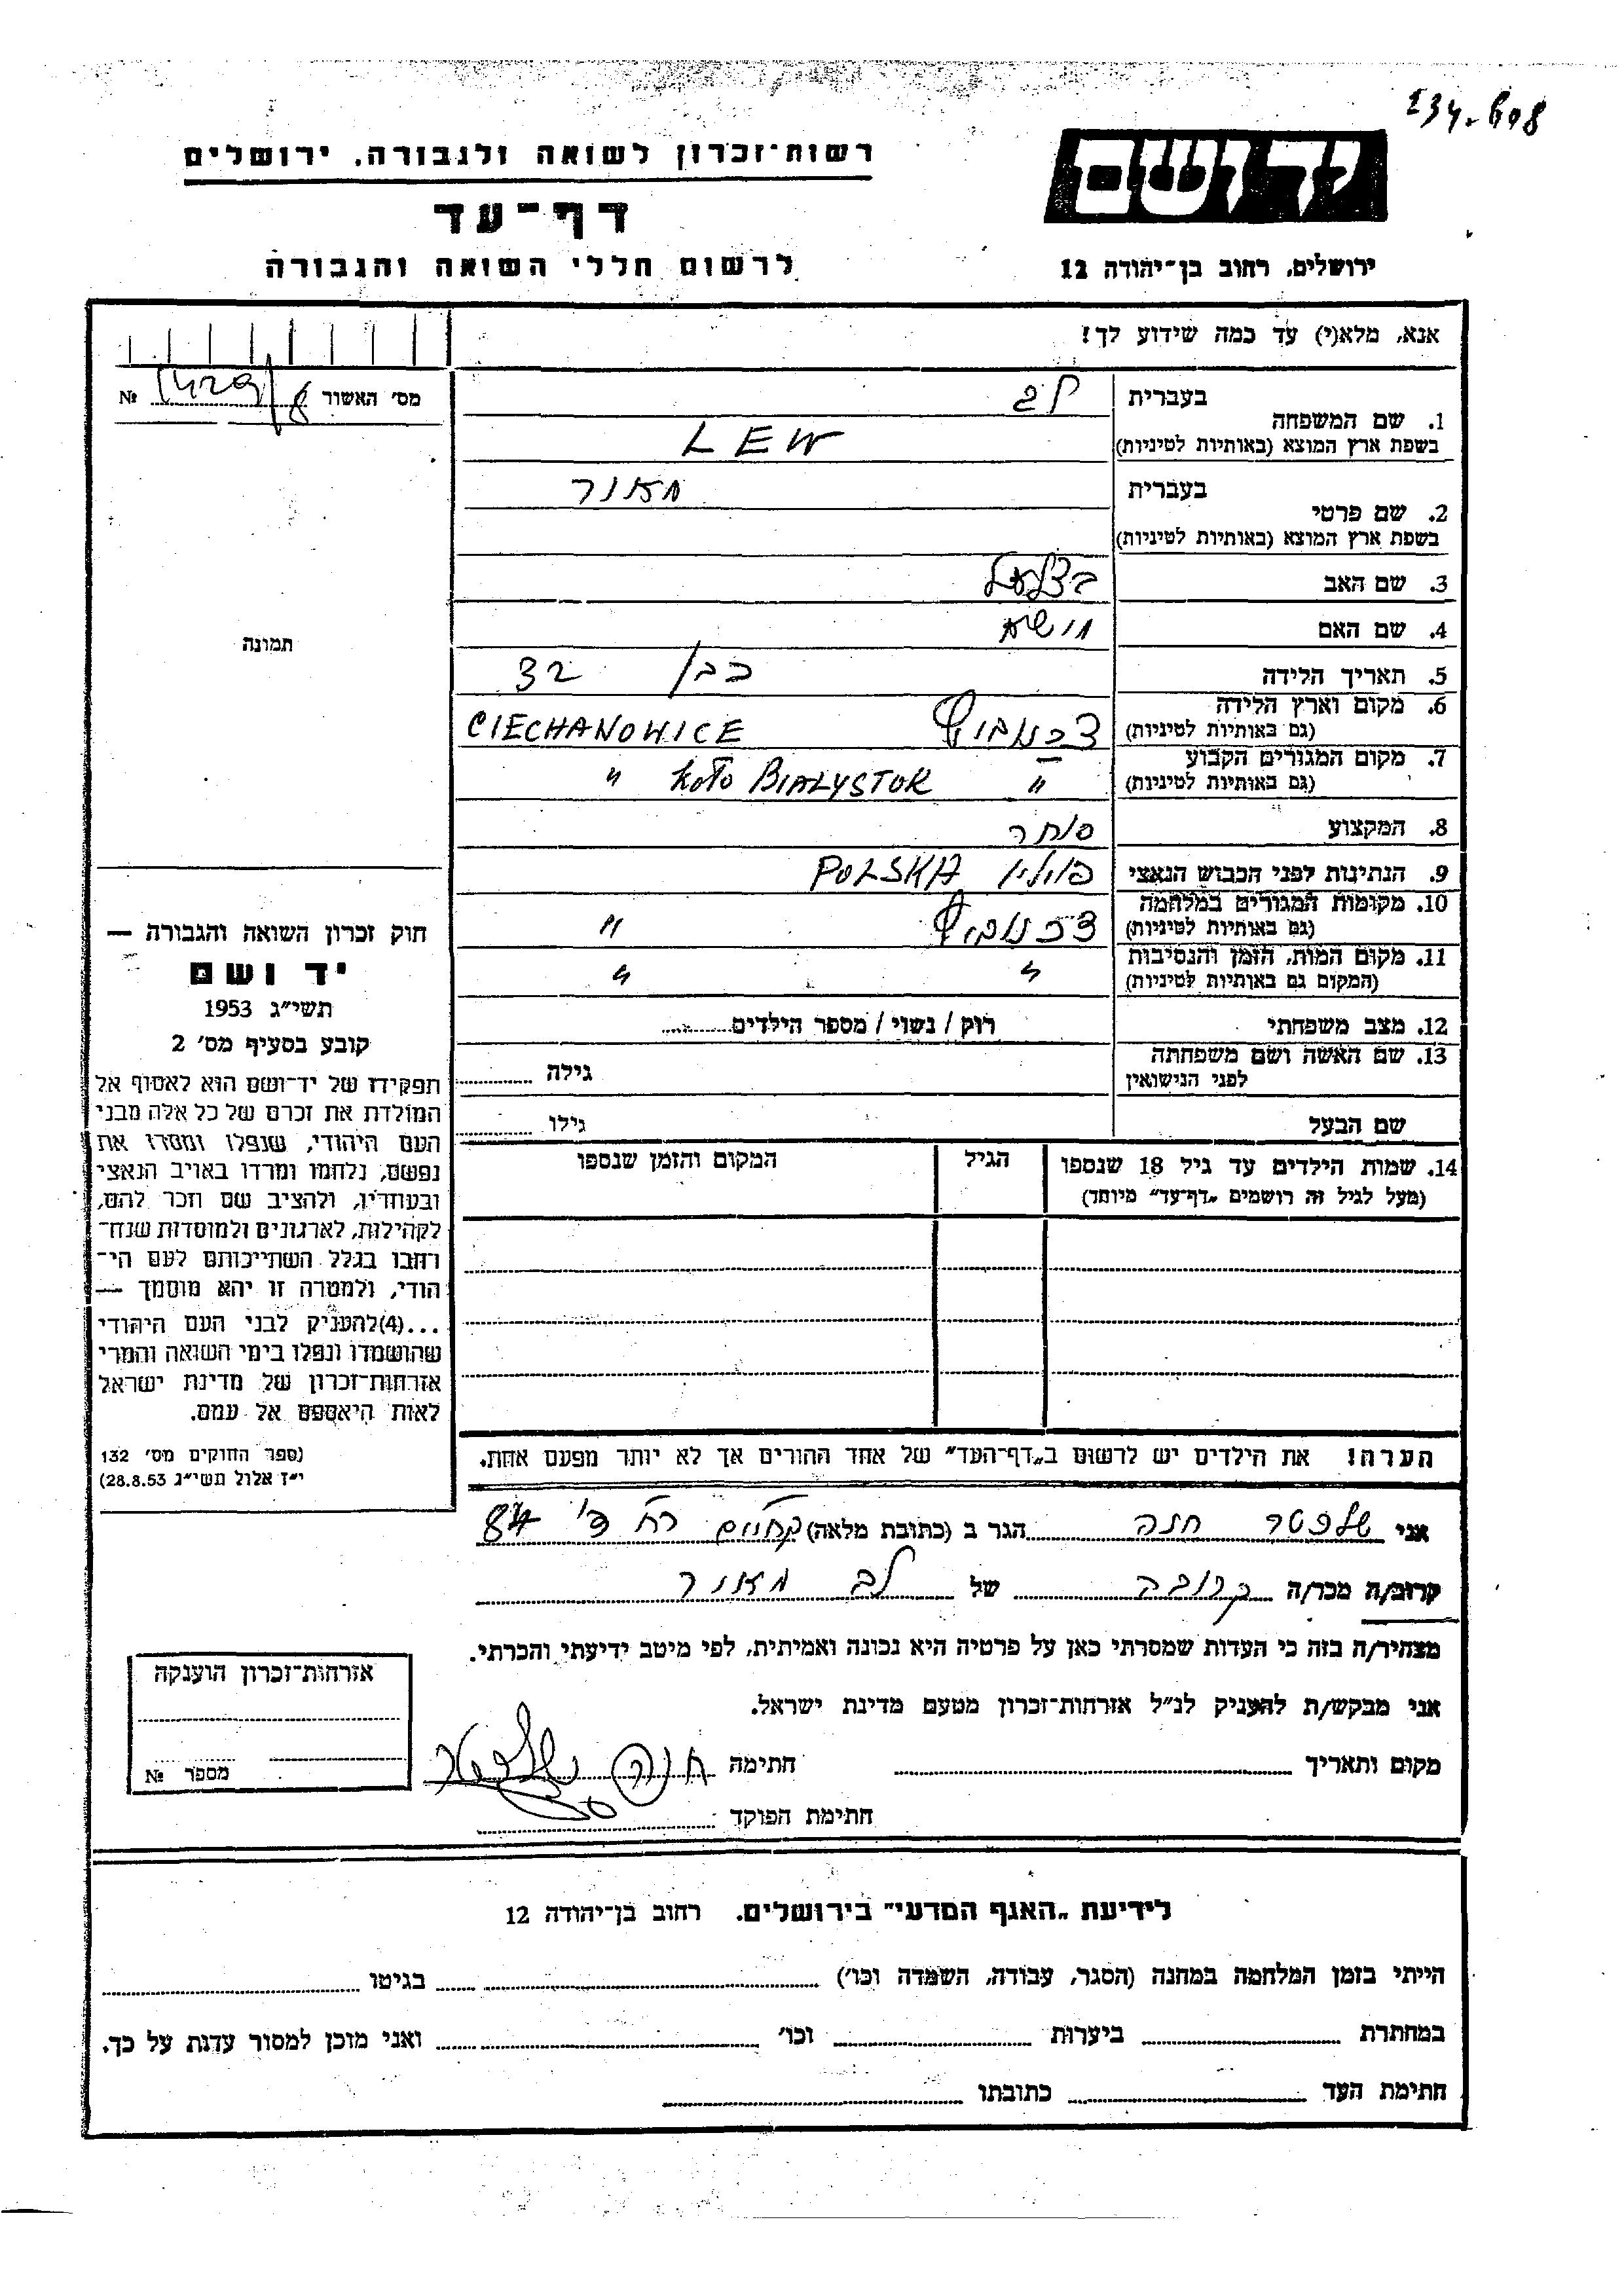 134-608
ידושם
רשות־זכרון לשואה ולגבורה, ירושלים
דף־עד
לרשום חללי השואה והגבורה
ירושלים, רחוב בן־יהודה 12
אנא, מלא(י) עד כמה שידוע לך!
מס׳ האשור 8/1429 №
1. שם המשפחה
בעברית לב
בשפת ארץ המוצא (באותיות לטיניות) LEW
2. שם פרטי
בעברית מאור
בשפת ארץ המוצא (באותיות לטיניות)
3. שם האב בצלאל
4. שם האם מושא
5. תאריך הלידה כבן 32
6. מקום וארץ הלידה
(גם באותיות לטיניות) CIECHANOWICE
7. מקום המגורים הקבוע
(גם באותיות לטיניות) " KOŁO BIALYSTOK "
8. המקצוע סוחר
9. הנתינות לפני הכבוש הנאצי פולין POLSKA
10. מקומות המגורים במלחמה
(גם באותיות לטיניות) "
11. מקום המות, הזמן והנסיבות
(המקום גם באותיות לטיניות) " "
12. מצב משפחתי רוק / נשוי / מספר הילדים
13. שם האשה ושם משפחתה
לפני הנישואין גילה
שם הבעל גילו
14. שמות הילדים עד גיל 18 שנספו
(מעל לגיל זה רושמים „דף־עד״ מיוחד)
הגיל
המקום והזמן שנספו
הערה! את הילדים יש לרשום ב„דף־העד״ של אחד ההורים אך לא יותר מפעם אחת.
תמונה
חוק זכרון השואה והגבורה —
יד ושם
תשי״ג 1953
קובע בסעיף מס׳ 2
תפקידו של יד־ושם הוא לאסוף אל
המולדת את זכרם של כל אלה מבני
העם היהודי, שנפלו ומסרו את
נפשם, נלחמו ומרדו באויב הנאצי
ובעוזריו, ולהציב שם וזכר להם,
לקהילות, לארגונים ולמוסדות שנח־
רבו בגלל השתייכותם לעם הי־
הודי, ולמטרה זו יהא מוסמך —
...(4)להעניק לבני העם היהודי
שהושמדו ונפלו בימי השואה והמרי
אזרחות־זכרון של מדינת ישראל
לאות היאספם אל עמם.
(ספר החוקים מס׳ 132
י״ז אלול תשי״ג 28.8.53)
אני שלפטר חנה הגר ב (כתובת מלאה) 84
קרוב/ה מכר/ה קרובה של לב מאור
מצהיר/ה בזה כי העדות שמסרתי כאן על פרטיה היא נכונה ואמיתית, לפי מיטב ידיעתי והכרתי.
אני מבקש/ת להעניק לנ״ל אזרחות־זכרון מטעם מדינת ישראל.
מקום ותאריך חתימה חנה שלפטר
חתימת הפוקד
אזרחות־זכרון הוענקה
מספר №
לידיעת „האגף המדעי״ בירושלים, רחוב בן־יהודה 12
הייתי בזמן המלחמה במחנה (הסגר, עבודה, השמדה וכו׳) בגיטו
במחתרת ביערות וכו׳ ואני מוכן למסור עדות על כך.
חתימת העד כתובתו